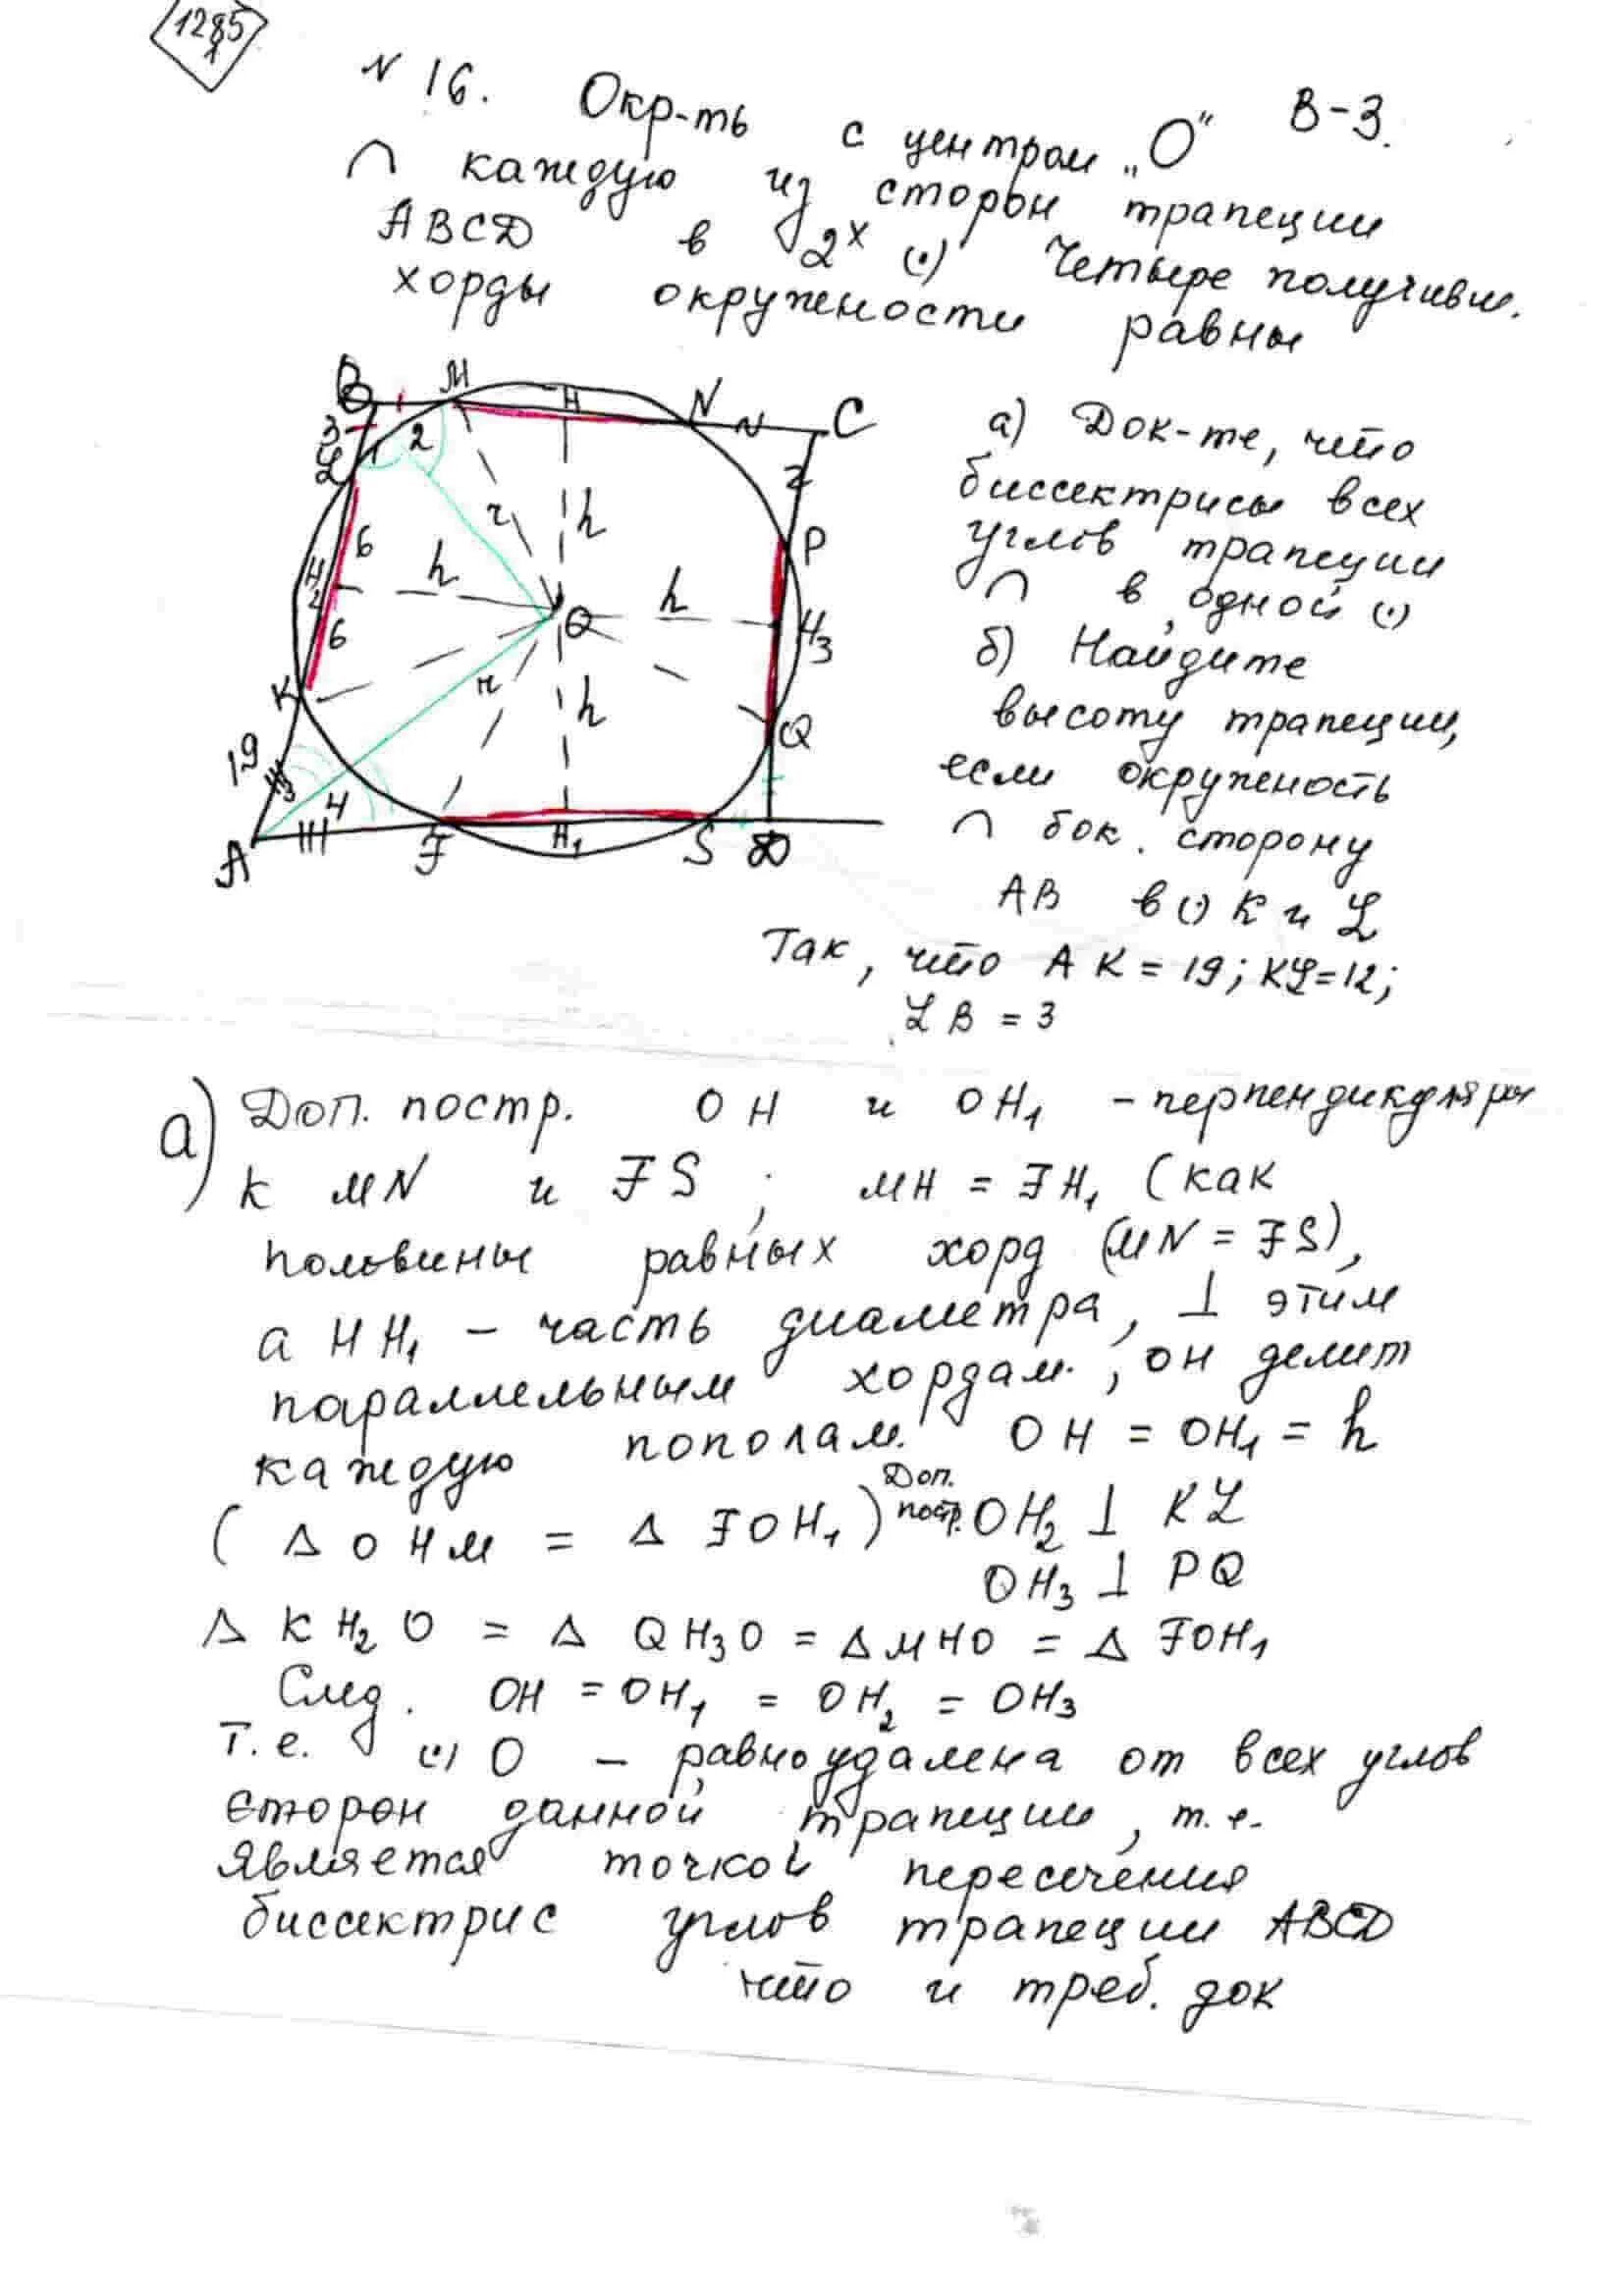 1285
N 16. Окр-ть с центром „О" В-3.
∩ каждую из сторон трапеции
ABCD в 2х (•) Четыре получивш.
хорды окружности равны
B M H N C
3 2 1
L 6 h r h 2 P
H2 6 O h H3
K r h Q
19 3 4
A F H1 S D
а) Док-те, что
биссектрисы всех
углов трапеции
∩ в одной (•)
б) Найдите
высоту трапеции,
если окружность
∩ бок. сторону
AB в (•) K и L
Так, что AK = 19; KL=12;
LB = 3
а) Доп. постр. OH и OH1 - перпендикуляры
к MN и FS; MH = FH1 (как
половины равных хорд (MN = FS),
а HH1 - часть диаметра, ⊥ этим
параллельным хордам, он делит
каждую пополам. OH = OH1 = h
(Δ OHM = Δ FOH1) Доп. постр. OH2 ⊥ KL
OH3 ⊥ PQ
Δ KH2O = Δ QH3O = Δ MHO = Δ FOH1
След. OH = OH1 = OH2 = OH3
Т.е. (•) O - равноудалена от всех углов
сторон данной трапеции, т.е.
является точкой пересечения
биссектрис углов трапеции ABCD
что и треб. док